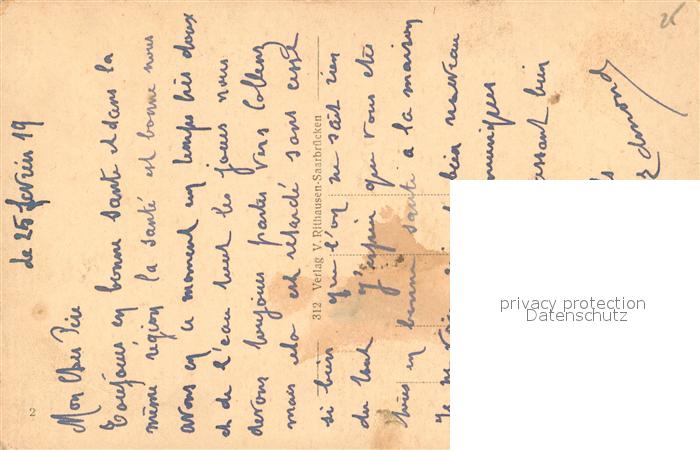 le 25 février 19
Mon Cher Père
Toujours en bonne santé et dans la
même région la santé est bonne nous
avons en ce moment un temps très doux
et de l'eau tout les jours nous
devons toujours partir vers Coblenz
mais cela est retardé sans cesse
si bien que l'on ne sait rien
du tout J'espère que vous êtes
tous en bonne santé à la maison
Je ne vois bien nouveau
bien
Edmond
312 Verlag V. Rithausen-Saarbrücken
2
25
privacy protection
Datenschutz